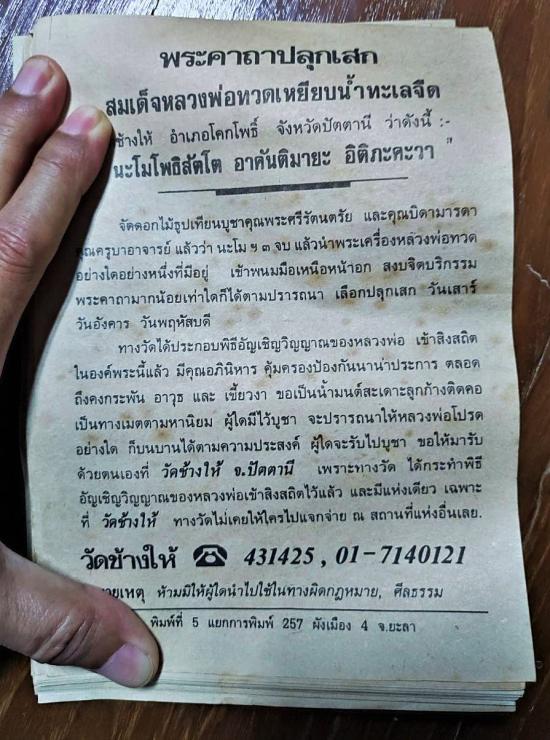 พระคาถาปลุกเสก
สมเด็จหลวงพ่อทวดเหยียบน้ำทะเลจืด
ช้างให้ อำเภอโคกโพธิ์ จังหวัดปัตตานี ว่าดังนี้ :-
นะโมโพธิสัตโต อาคันติมายะ อิติภะคะวา "
จัดดอกไม้ธูปเทียนบูชาคุณพระศรีรัตนตรัย และคุณบิดามารดา
คุณครูบาอาจารย์ แล้วว่า นะโม ฯ ๓ จบ แล้วนำพระเครื่องหลวงพ่อทวด
อย่างใดอย่างหนึ่งที่มีอยู่ เข้าพนมมือเหนือหน้าอก สงบจิตบริกรรม
พระคาถามากน้อยเท่าใดก็ได้ตามปรารถนา เลือกปลุกเสก วันเสาร์
วันอังคาร วันพฤหัสบดี
ทางวัดได้ประกอบพิธีอัญเชิญวิญญาณของหลวงพ่อ เข้าสิงสถิต
ในองค์พระนี้แล้ว มีคุณอภินิหาร คุ้มครองป้องกันนานาประการ ตลอด
ถึงคงกระพัน อาวุธ และ เขี้ยวงา ขอเป็นน้ำมนต์สะเดาะลูกก้างติดคอ
เป็นทางเมตตามหานิยม ผู้ใดมีไว้บูชา จะปรารถนาให้หลวงพ่อโปรด
อย่างใด ก็บนบานได้ตามความประสงค์ ผู้ใดจะรับไปบูชา ขอให้มารับ
ด้วยตนเองที่ วัดช้างให้ จ.ปัตตานี เพราะทางวัด ได้กระทำพิธี
อัญเชิญวิญญาณของหลวงพ่อเข้าสิงสถิตไว้แล้ว และมีแห่งเดียว เฉพาะ
ที่ วัดช้างให้ ทางวัดไม่เคยให้ใครไปแจกจ่าย ณ สถานที่แห่งอื่นเลย.
วัดช้างให้ ☎ 431425 , 01-7140121
ายเหตุ ห้ามมิให้ผู้ใดนำไปใช้ในทางผิดกฎหมาย, ศีลธรรม
พิมพ์ที่ 5 แยกการพิมพ์ 257 ผังเมือง 4 จ.ยะลา